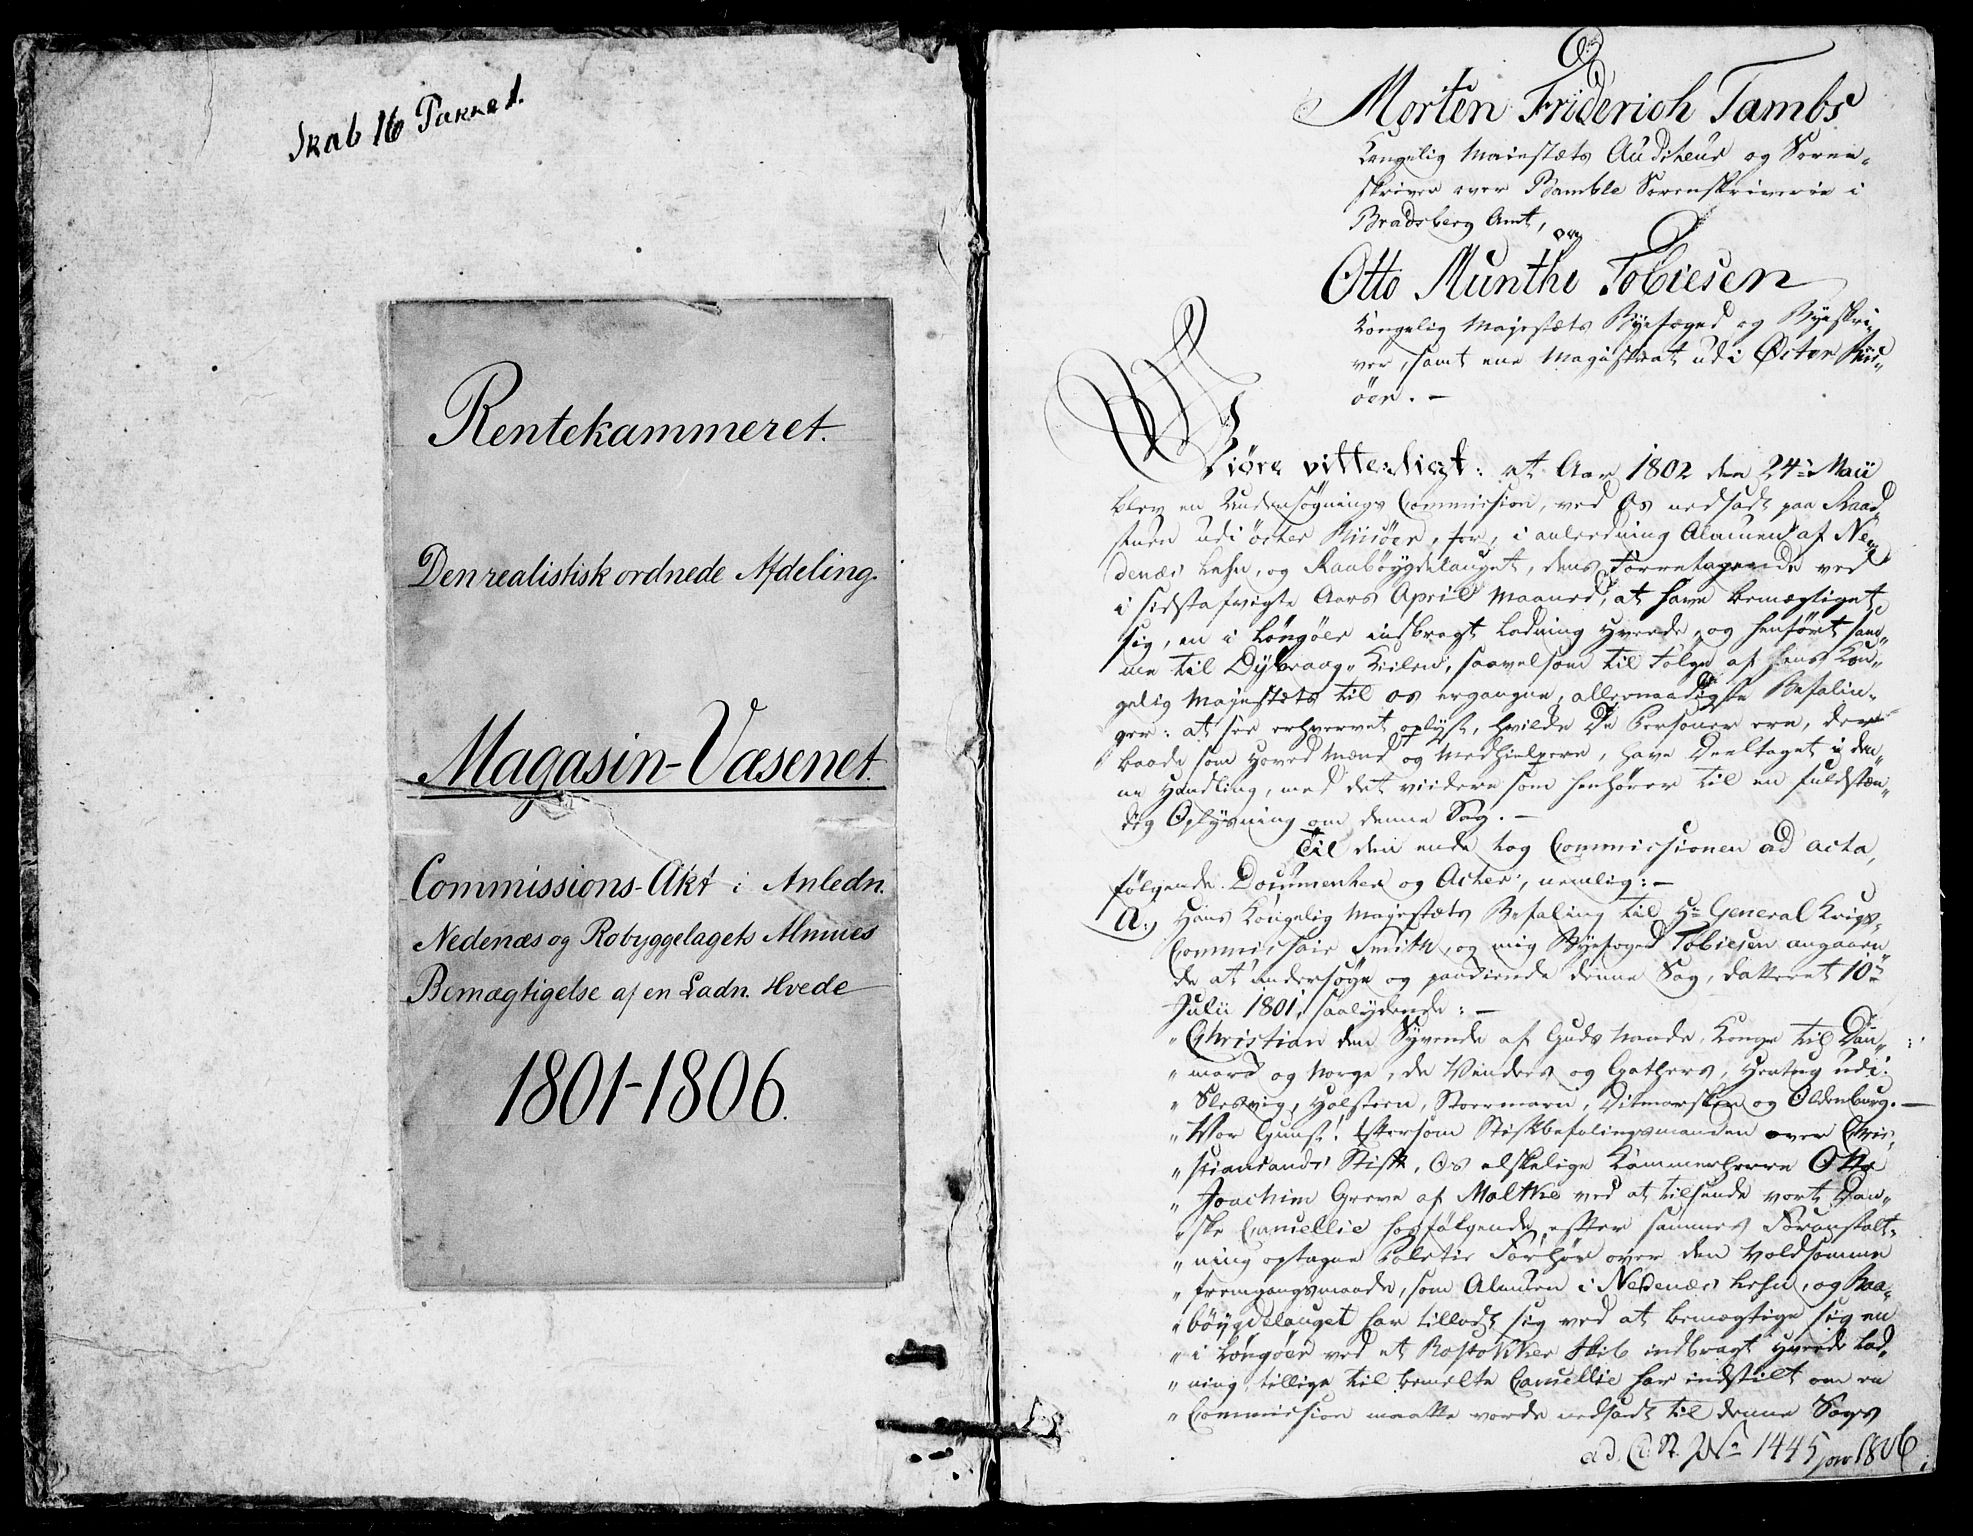 Skab 16 Pakke 1.
Rentekammeret.
Den realistisk ordnede Afdeling.
Magasin-Væsenet.
Commissions-Akt i Anledn.
Nedenæs og Robyggelagets Almues
Bemægtigelse af en Ladn. Hvede
1801-1806.
Morten Friderich Tambs
Kongelig Maiestæts Auditeur og Soren-
skriver over Bamble Sorenskriverie i
Bradsberg Amt,
og
Otto Munthe Tobiesen
Kongelig Majestæts Byefoged og Byeskri-
ver, samt ene Magistrat udi Øster Riis-
öer. -
Giöre vitterligt: at Aar 1802 den 24de Maii
blev en Undersøgnings Commission, ved Os nedsadt paa Raad-
stuen udi öster Riisöer, for, i anledning Almuen af Ne-
denæs Lehn, og Raabøygdelauget, dens Foretagende ved
i sidstafvigte Aars April Maaned, at have bemægtiget
sig, en i Longöer indbragt Ladning Hvede, og henført sam-
me til Dybvaag-Kiilen, saavelsom til følge af Hans Kon-
gelig Majestæts til os ergangne, allernaadigste Befalin-
ger: at see erhvervet oplyst, hvilke De Personer ere, der
baade som Hoved Mænd og Medhielpere, have Deeltaget i den-
ne Handling, med det viidere som henhører til en fuldstæn-
dig Oplysning om denne Sag. -
Til den ende tog Commissionen ad acta,
følgende Documenter og Acter, nemlig: -
A., Hans Kongelig Majestæts Befaling til Hr General Krigs-
Commissair Smith, og mig Byefoged Tobiesen angaaen-
de at undersøge og paakiende denne Sag, datteret 10de
Julii 1801, saalydende: -
"Christian den Syvende af Guds Naade, Konge til Dan-
"mark og Norge, de Venders og Gothers, Hertug udi
"Slesvig, Holsteen, Stormarn, Ditmarsken og Oldenburg. -
"Vor Gunst! Eftersom Stiftbefalingsmanden over Chri-
"stiansands Stift, Os elskelige Kammerherre Otto
"Joachim Greve af Moltke ved at tilsende vort Dan-
"ske Cancellie hosfølgende, efter sammes Foranstalt-
"ning optagne Politie Forhør over den voldsomme
"fremgangsmaade, som Almuen i Nedenæs Lehn, og Raa-
"böygdelauget har tilladt sig ved at bemægtige sig en
"i Longöer ved et Rostokker Skib indbragt Hvede Lad-
"ning, tillige til bemelte Cancellie har indstilt om en
"Commission maatte vorde nedsadt til denne Sags
ad No 1445 for 1806